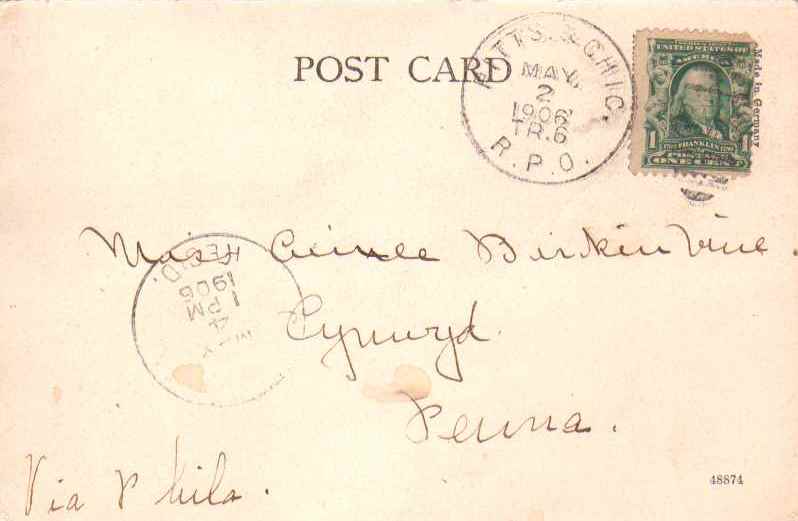 POST CARD
PITTS. & CHIC.
MAY
2
1906
TR.6
R.P.O.
UNITED STATES OF
AMERICA
1 FRANKLIN 1
POSTAGE
ONE CENT
Made in Germany
Miss Birkinbine.
Cynwyd
Penna.
REC'D.
1906
1
PM
4
Via Phila.
48874